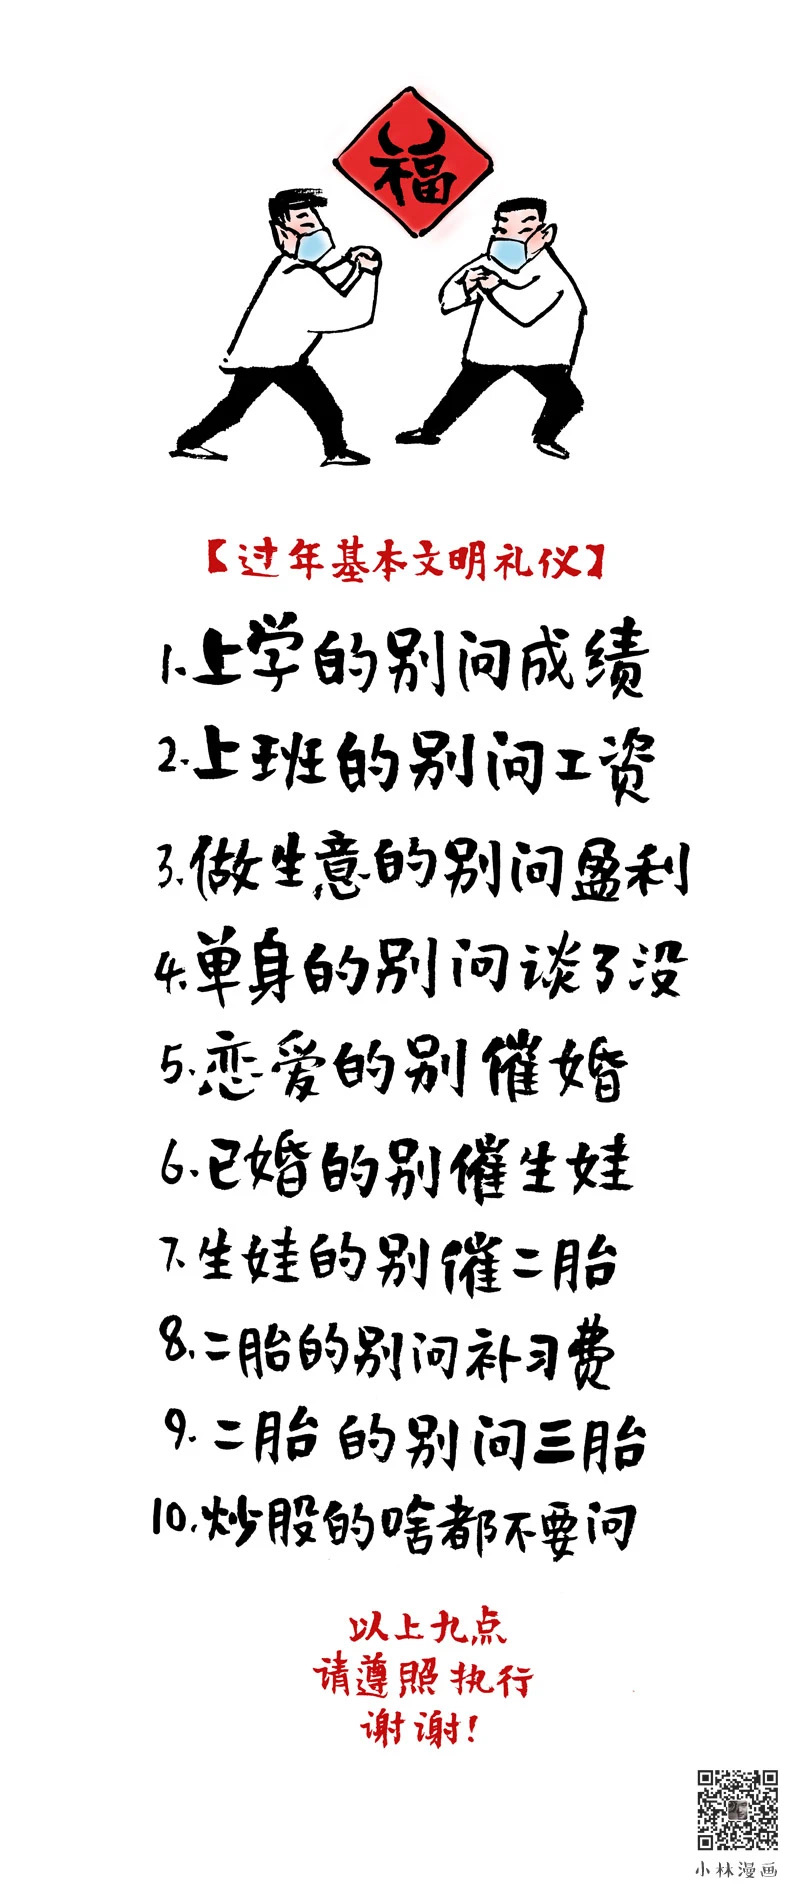 福
【过年基本文明礼仪】
1.上学的别问成绩
2.上班的别问工资
3.做生意的别问盈利
4.单身的别问谈了没
5.恋爱的别催婚
6.已婚的别催生娃
7.生娃的别催二胎
8.二胎的别问补习费
9.二胎的别问三胎
10.炒股的啥都不要问
以上九点
请遵照执行
谢谢!
小林漫画